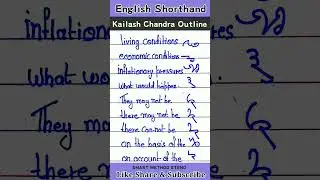 English Shorthand
Kailash Chandra Outline
living conditions
economic conditions
Inflationary pressures
What would happen
They may not be
there may not be
there can not be
on the basis of the
on account of the
SMART METHOD STENO
Like Share & Subscribe